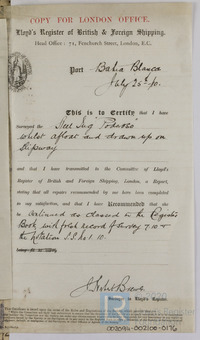 COPY FOR LONDON OFFICE.
Lloyd's Register of British & Foreign Shipping.
Head Office: 71, Fenchurch Street, London, E.C.
Port Bahia Blanca
July 25th 10.
This is to Certify that I have
Surveyed the Steel Tug
whilst afloat and drawn up on
Slipway
and that I have transmitted to the Committee of Lloyd's
Register of British and Foreign Shipping, London, a Report,
stating that all repairs recommended by me have been completed
to my satisfaction, and that I have Recommended that she
be continued as classed in the Register
Book with fresh record of Survey 7.10 &
the Notation S.S. No 1. 10.
Surveyor to Lloyd's Register.
002094-002100-0176